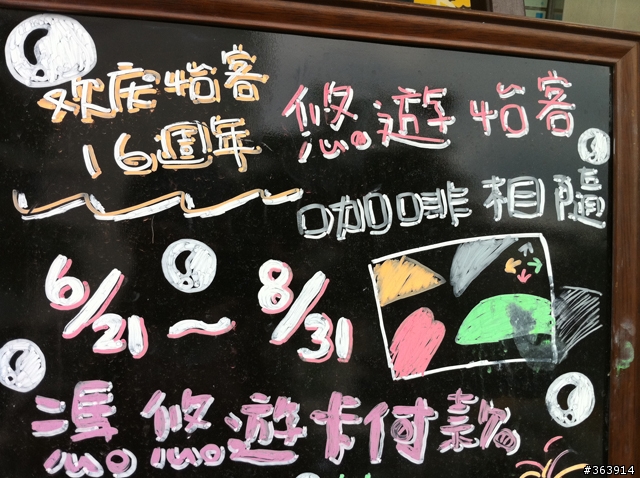 欢庆怡客
16週年
悠遊怡客
咖啡相隨
6/21～8/31
憑悠遊卡付款
#363914